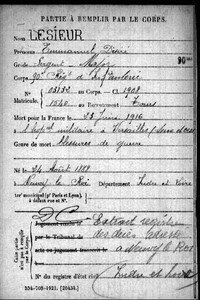 PARTIE À REMPLIR PAR LE CORPS.
Nom LESIEUR
Prénoms Emmanuel Désiré
Grade Sergent Major
90e Régt d'Infanterie
N° 05132 au Corps. — Cl. 1908
Matricule. 1540 au Recrutement Tours
Mort pour la France le 23 Juin 1916
à l'hôpital militaire à Versailles
Genre de mort Blessures de guerre
Né le 24 Août 1888
à Neuvy le Roi Département Indre et Loire
Arr municipal (pr Paris et Lyon),
à défaut rue et N°.
Jugement rendu le
par le Tribunal de
acte ou jugement transcrit le
à Neuvy le Roi
N° du registre d'état civil
Indre et Loire
534-708-1921. [26434.]